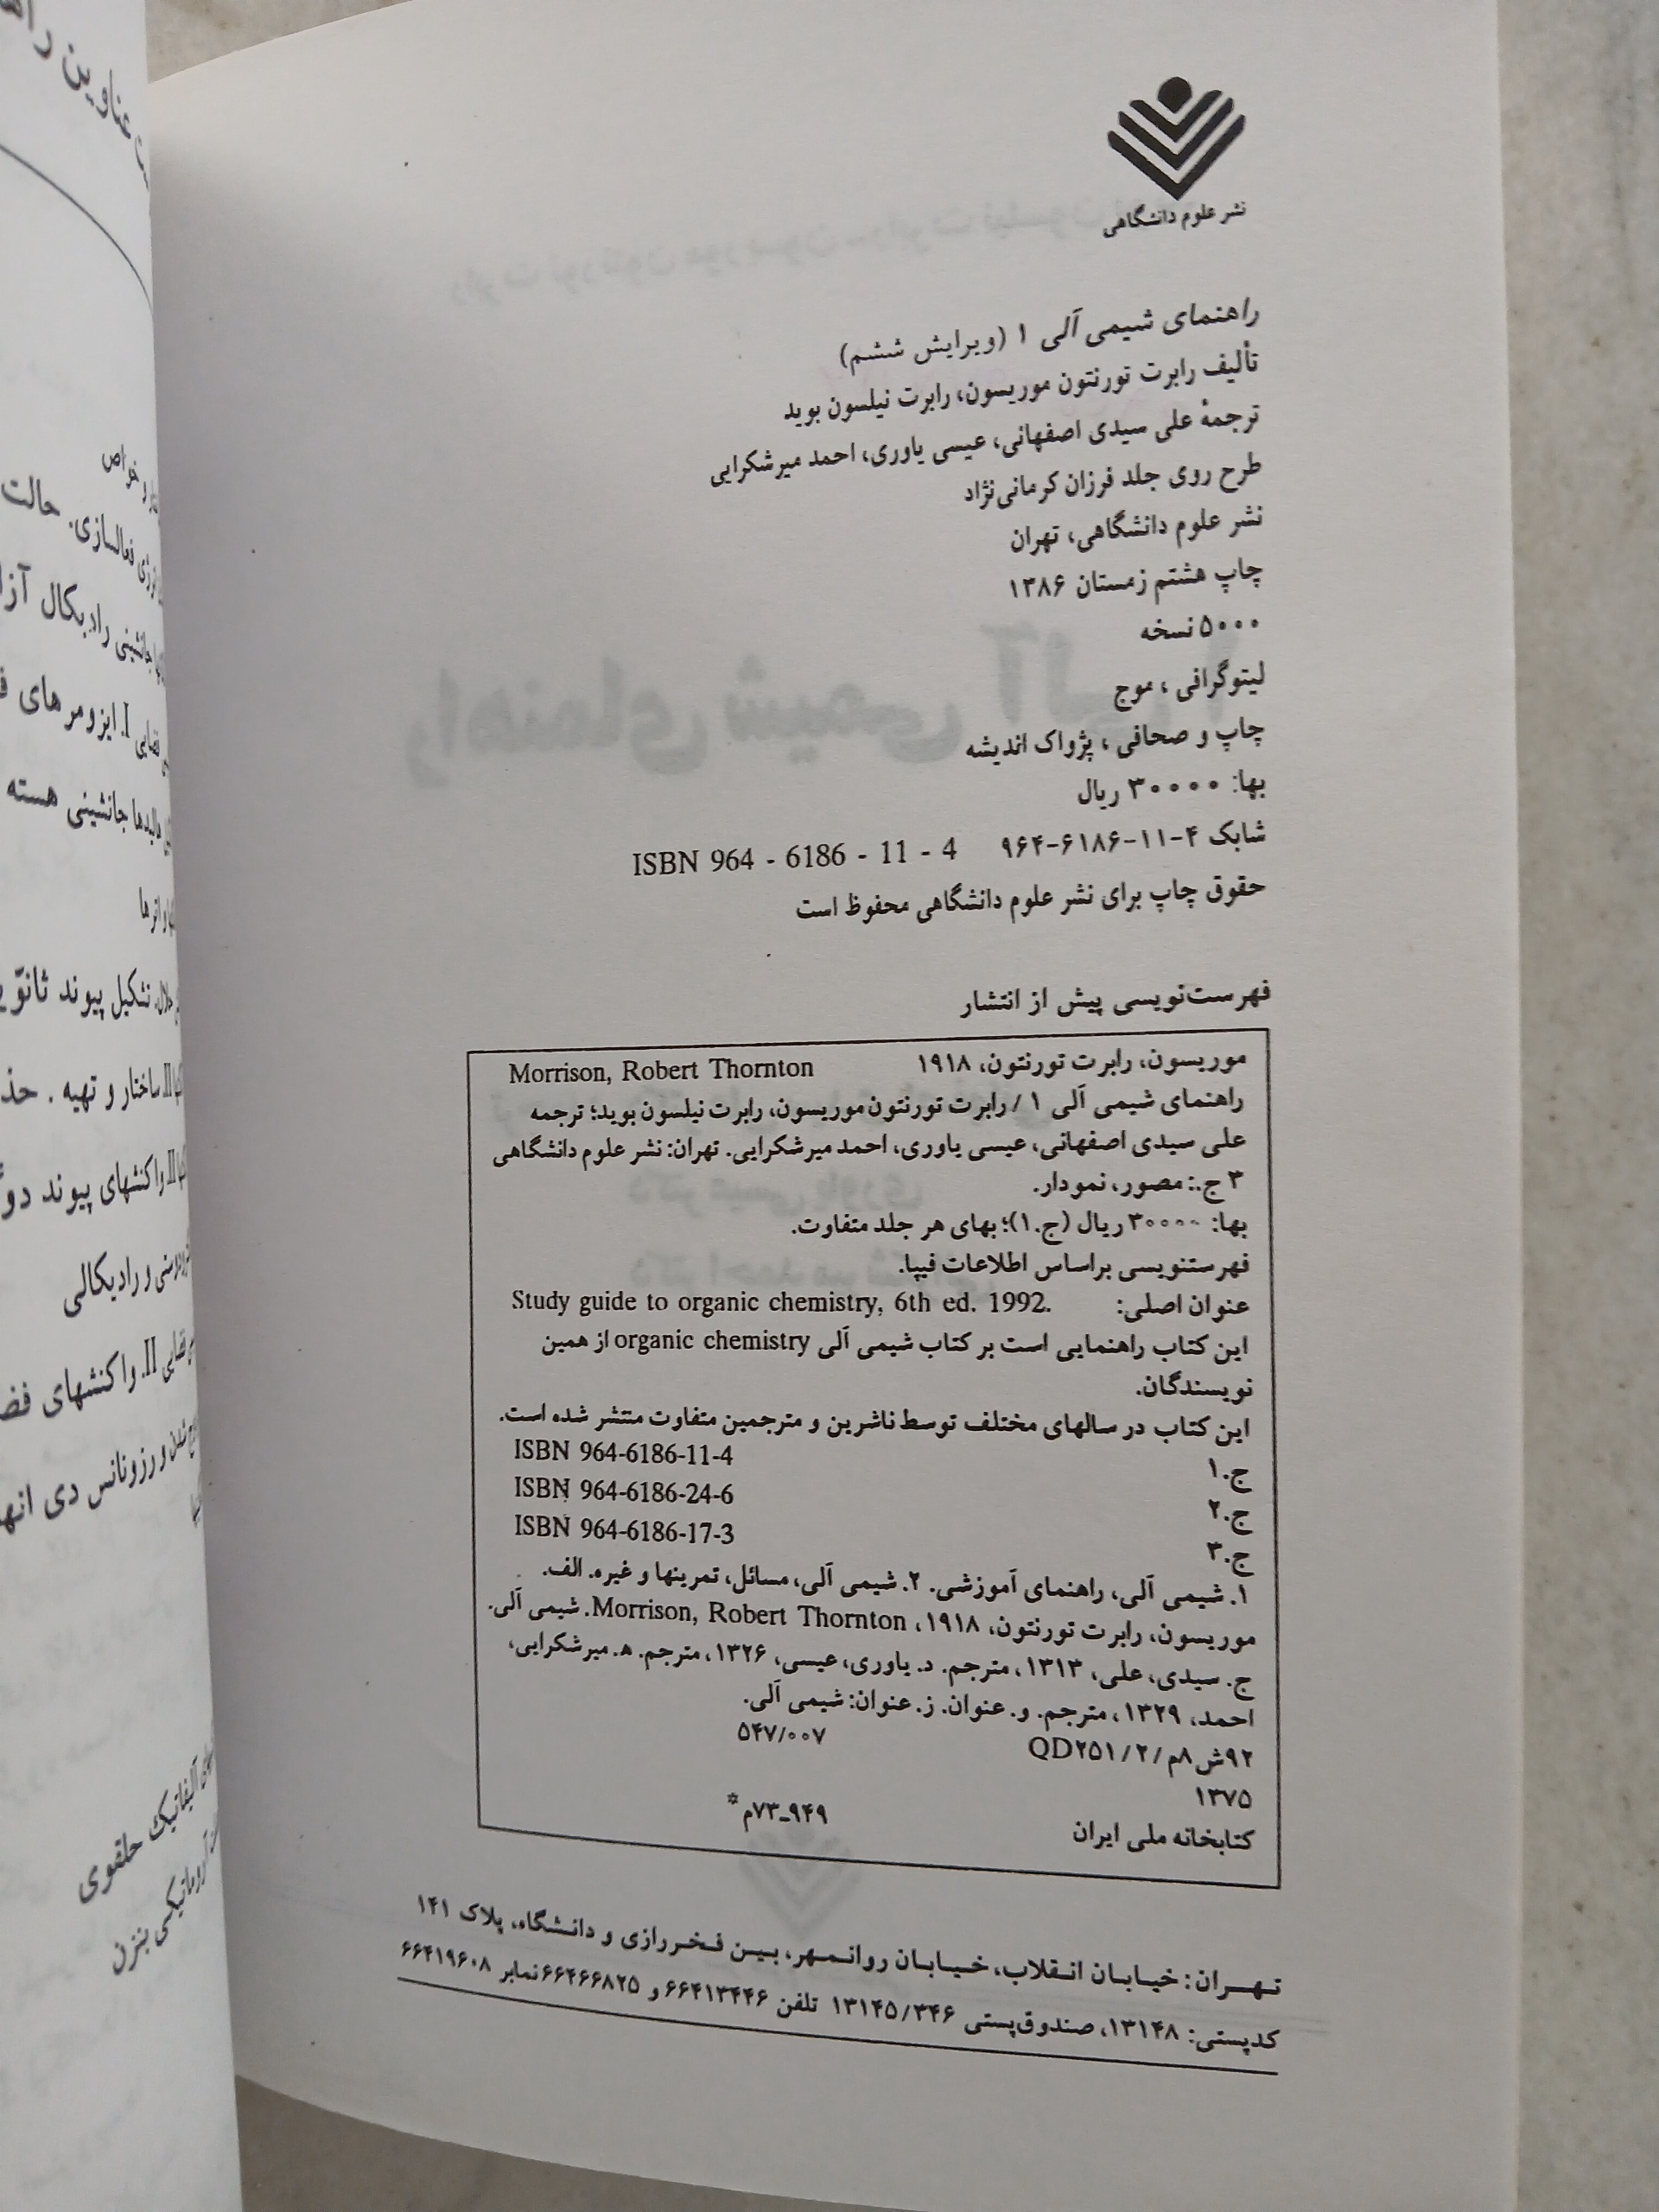 نشر علوم دانشگاهی
راهنمای شیمی آلی ۱ (ویرایش ششم)
تألیف رابرت تورنتون موریسون، رابرت نیلسون بوید
ترجمهٔ علی سیدی اصفهانی، عیسی یاوری، احمد میرشکرایی
طرح روی جلد فرزان کرمانی‌نژاد
نشر علوم دانشگاهی، تهران
چاپ هشتم زمستان ۱۳۸۶
۵۰۰۰ نسخه
لیتوگرافی ، موج
چاپ و صحافی ، پژواک اندیشه
بها: ۳۰۰۰۰ ریال
شابک ۴-۱۱-۶۱۸۶-۹۶۴ ISBN 964 - 6186 - 11 - 4
حقوق چاپ برای نشر علوم دانشگاهی محفوظ است
فهرست‌نویسی پیش از انتشار
موریسون، رابرت تورنتون، ۱۹۱۸ Morrison, Robert Thornton
راهنمای شیمی آلی ۱ / رابرت تورنتون موریسون، رابرت نیلسون بوید؛ ترجمه
علی سیدی اصفهانی، عیسی یاوری، احمد میرشکرایی. تهران: نشر علوم دانشگاهی
۳ ج.: مصور، نمودار.
بها: ۳۰۰۰۰ ریال (ج.۱)؛ بهای هر جلد متفاوت.
فهرستنویسی براساس اطلاعات فیپا.
عنوان اصلی: Study guide to organic chemistry, 6th ed. 1992.
این کتاب راهنمایی است بر کتاب شیمی آلی organic chemistry از همین
نویسندگان.
این کتاب در سالهای مختلف توسط ناشرین و مترجمین متفاوت منتشر شده است.
ج.۱ ISBN 964-6186-11-4
ج.۲ ISBN 964-6186-24-6
ج.۳ ISBN 964-6186-17-3
۱. شیمی آلی، راهنمای آموزشی. ۲. شیمی آلی، مسائل، تمرینها و غیره. الف.
موریسون، رابرت تورنتون، ۱۹۱۸، Morrison, Robert Thornton. شیمی آلی.
ج. سیدی، علی، ۱۳۱۳، مترجم. د. یاوری، عیسی، ۱۳۲۶، مترجم. ه‍. میرشکرایی،
احمد، ۱۳۲۹، مترجم. و. عنوان. ز. عنوان: شیمی آلی.
۹۲ش۸م/۲/QD۲۵۱ ۵۴۷/۰۰۷
۱۳۷۵
کتابخانه ملی ایران ۹۴۹ـ۷۳م*
تهران: خیابان انقلاب، خیابان روانمهر، بین فخررازی و دانشگاه، پلاک ۱۴۱
کدپستی: ۱۳۱۴۸، صندوق‌پستی ۱۳۱۴۵/۳۴۶ تلفن ۶۶۴۱۳۴۴۶ و ۶۶۴۶۶۸۲۵ نمابر ۶۶۴۱۹۶۰۸
عناوین
و خواص
انرژی فعالسازی. حالت
جانشینی رادیکال
فضایی I. ایزومرهای
هالیدها جانشینی هسته
و اترها
حلال. تشکیل پیوند
II. ساختار و تهیه . حذ
II. واکنشهای پیوند
و رادیکالی
فضایی II. واکنشهای
و رزونانس دی
آلیفاتیک حلقوی
آروماتیکی بنزن